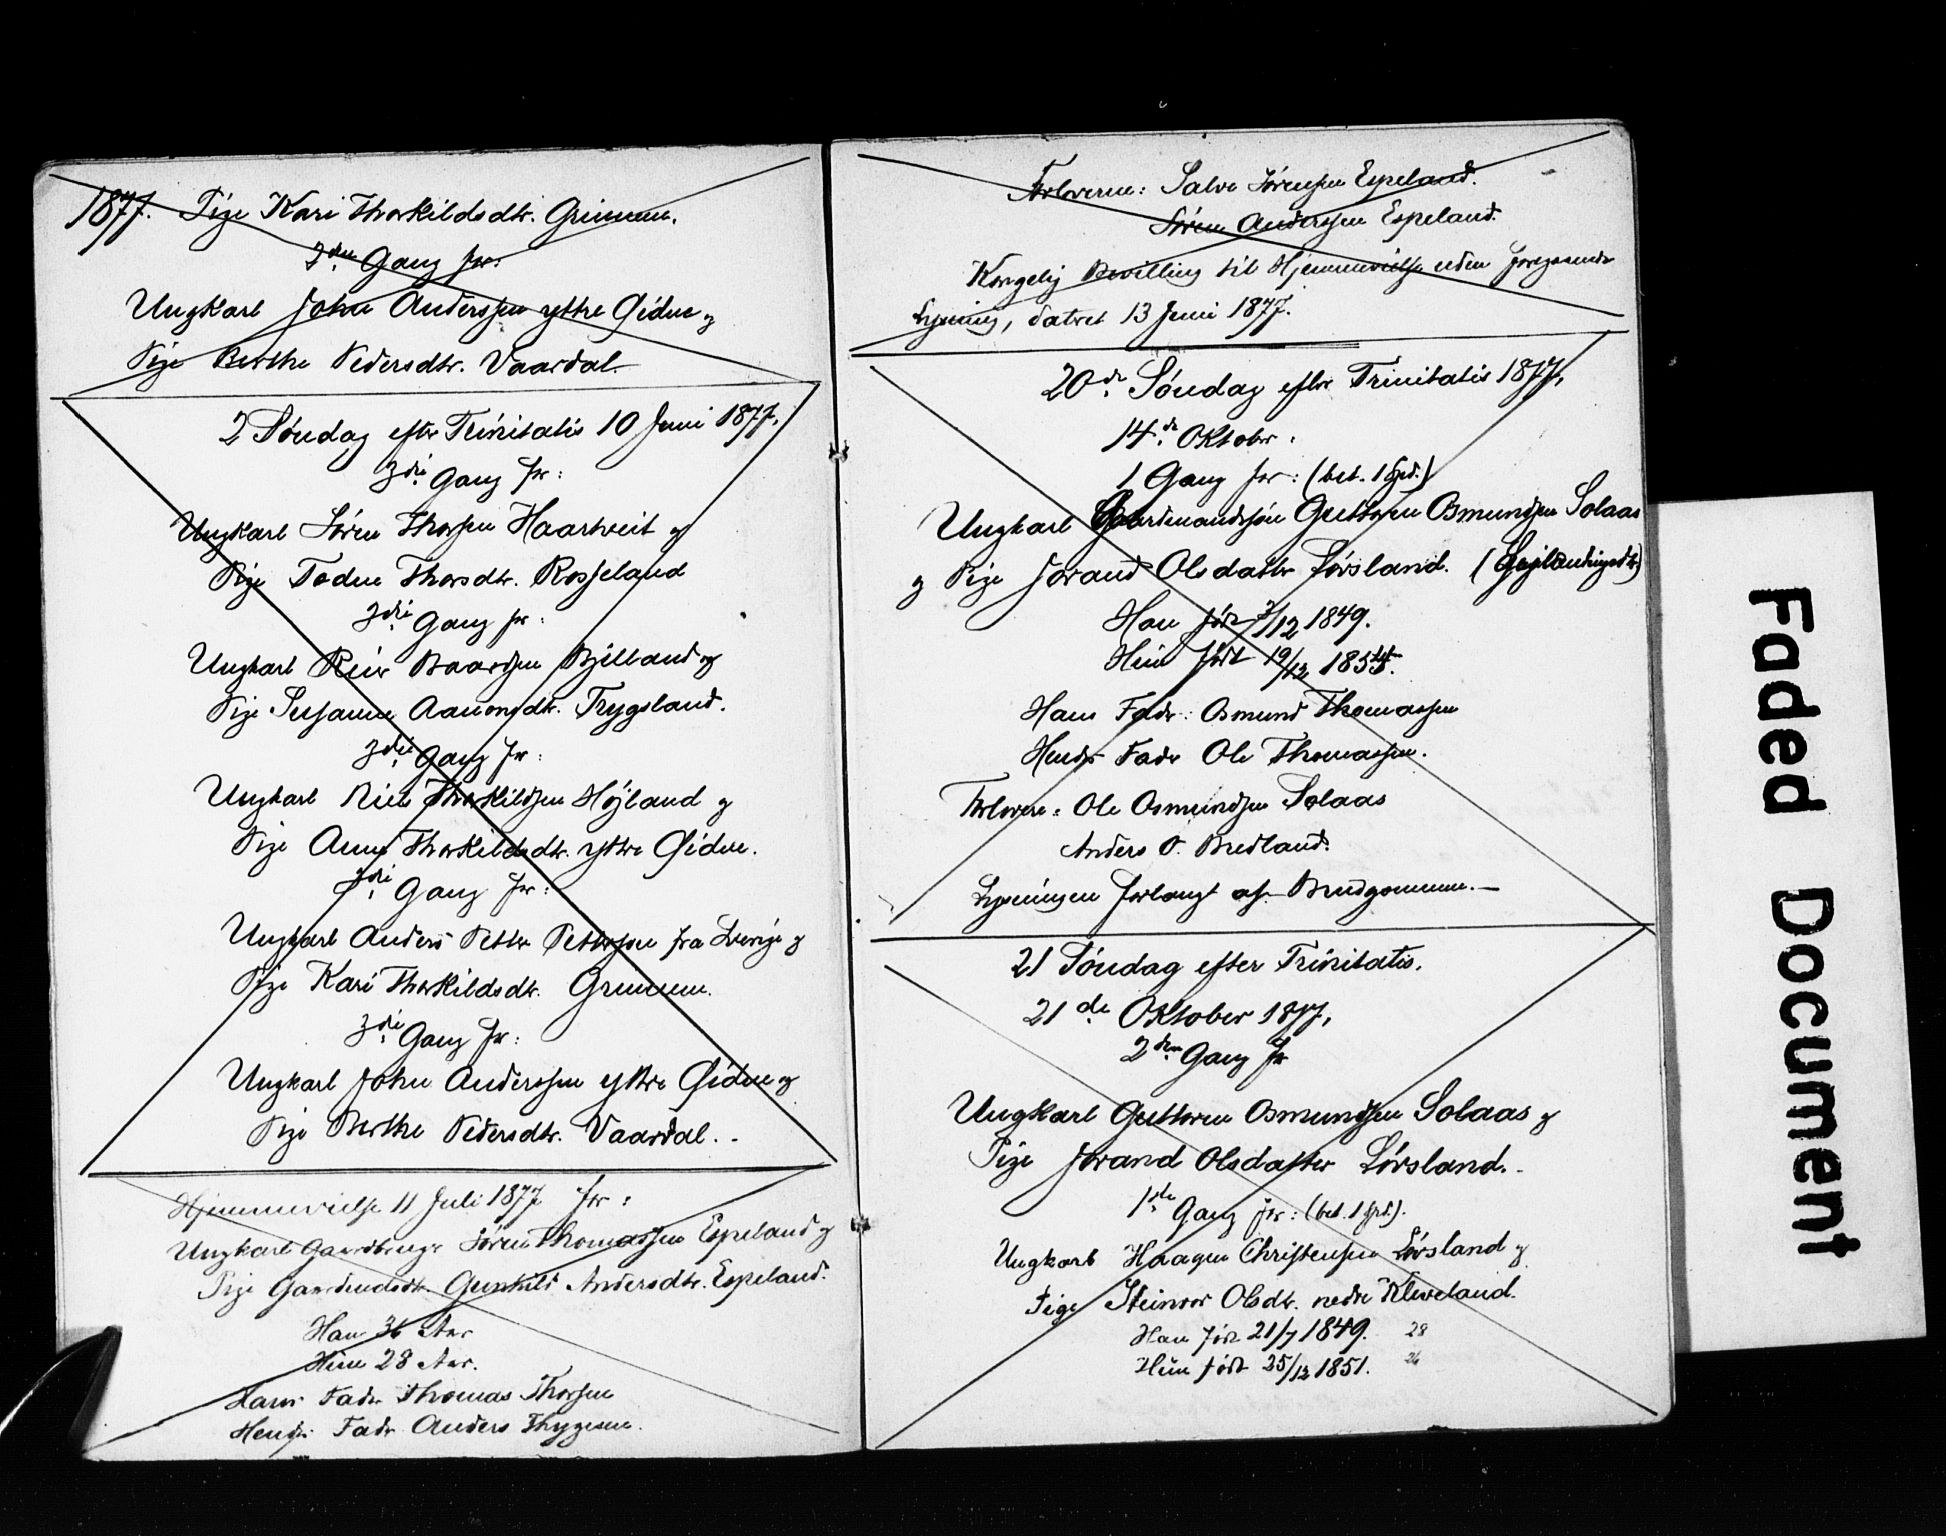 1877. Pige Kari Thorkildsdtr. Grimme.
2den Gang for:
Ungkarl John Anderssen yttre Øidne og
Pige Berthe Pedersdtr. Vaardal.
2 Søndag efter Trinitatis 10 Juni 1877.
3die Gang for:
Ungkarl Søren Thorsen Haartveit og
Pige Todne Thorsdtr. Rosseland
3die Gang for:
Ungkarl Reier Baardsen Bjelland og
Pige Susanne Aanonsdtr. Trygsland.
3die Gang for:
Ungkarl Niels Thorkildsen Højland og
Pige Anne Thorkildsdtr. yttre Øidne.
3die Gang for:
Ungkarl Anders Petter Pettersen fra Sverige og
Pige Kari Thorkildsdtr. Grimme.
3die Gang for:
Ungkarl John Anderssen yttre Øidne og
Pige Berthe Pedersdtr. Vaardal.
Hjemmevielse 11 Juli 1877 for:
Ungkarl Gaardbruger Søren Thomassen Espeland og
Pige Gaardmdsdtr. Gunhild Andersdtr. Espeland.
Han 36 Aar
Hun 28 Aar.
Hans Fader Thomas Thorsen
Hendes Fader Anders Thygesen.
Forloverne: Salve Sørensen Espeland.
Søren Anderssen Espeland.
Kongelig Bevilling til Hjemmevielse uden foregaaende
Lysning, datret 13 Juni 1877.
20de Søndag efter Trinitatis 1877,
14de Oktober.
1 Gang for: (bet. 1 Spd.)
Ungkarl Gaardmandssøn Guttorm Osmundsen Solaas
og Pige Jorand Olsdatter Lørsland.
Han født 7/12 1849.
Hun født 19/12 1854.
Hans Fader: Osmund Thomassen
Hendes Fader Ole Thomassen.
Forlovere: Ole Osmundsen Solaas
Anders O. Bredland.
Lysningen forlangt af Brudgommen.—
21 Søndag efter Trinitatis.
21de Oktober 1877,
2den Gang for
Ungkarl Guttorm Osmundsen Solaas og
Pige Jorand Olsdatter Lørsland.
1ste Gang for: (bet. 1 Spd.).
Ungkarl Haagen Christensen Lørsland og
Pige Steinvor Olsdtr. nedre Kleveland.
Han født 21/7 1849. 28
Hun født 25/12 1851. 26
Faded Document